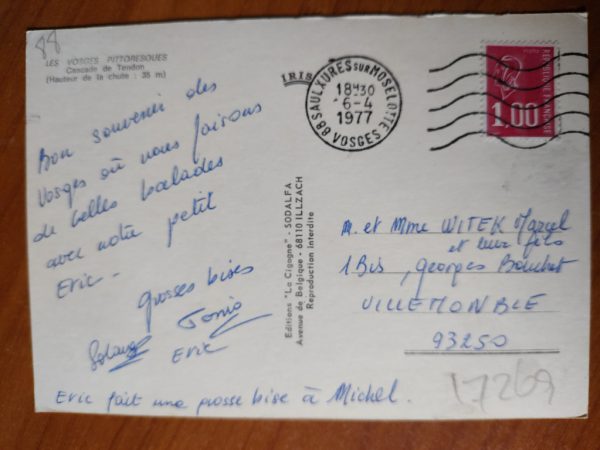 88
LES VOSGES PITTORESQUES
Cascade de Tendon
(Hauteur de la chute : 35 m)
IRIS
88 SAULXURES SUR MOSELOTTE
18H30
6-4
1977
VOSGES
REPUBLIQUE FRANÇAISE
1,00
Bon souvenir des
Vosges où nous faisons
de belles balades
avec notre petit
Eric -
grosses bises
Eric
Eric fait une grosse bise à Michel.
Editions "La Cigogne" - SODALFA
Avenue de Belgique - 68110 ILLZACH
Reproduction interdite
M. et Mme WITEK Marcel
et leur fils
1 Bis, Georges Bouchet
VILLEMONBLE
93250
17269